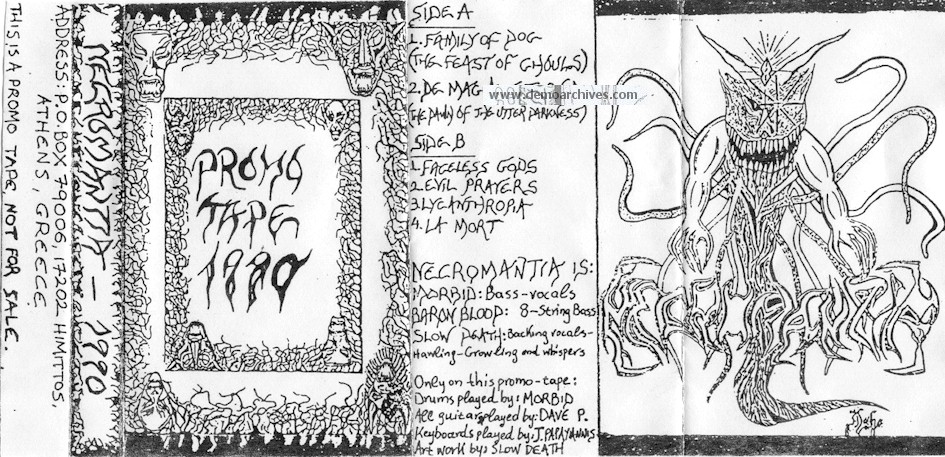 THIS IS A PROMO TAPE NOT FOR SALE.
ADDRESS: P.O. BOX 79006, 17202 HMITTOS,
ATHENS, GREECE
NECROMANTIA — 1990
PROMO
TAPE
1990
SIDE A
1. FAMILY OF DOG
(THE FEAST OF GHOULS)
2. DE MAG
www.demoarchives.com
THE DAWN OF THE UTTER DARKNESS)
SIDE B
1. FACELESS GODS
2. EVIL PRAYERS
3. LYCANTHROPIA
4. LA MORT
NECROMANTIA IS:
MORBID: Bass-vocals
BARON BLOOD: 8-String Bass
SLOW DEATH: Backing vocals-
Howling-Growling and whispers
Only on this promo-tape:
Drums played by: MORBID
All guitars played by: DAVE P.
Keyboards played by: J. PAPAYANNIS
Art work by: SLOW DEATH
NECROMANTIA